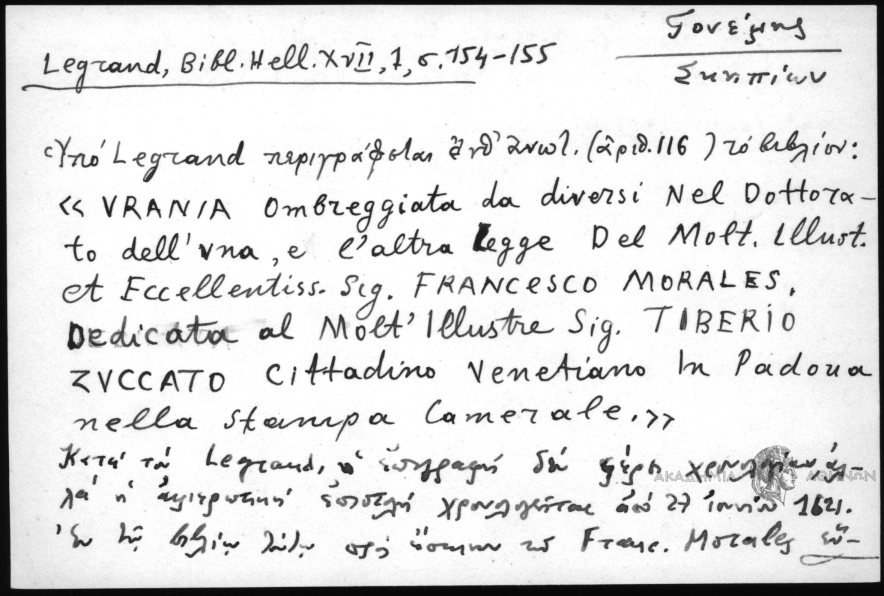 Γονέμης
Σκηπίων
Legrand, Bibl. Hell. XVII, 1, σ. 154-155
Ὑπό Legrand περιγράφεται ὑπ' ἀνωτ. (ἀριθ. 116) τό βιβλίον:
«VRANIA ombreggiata da diversi Nel Dottora-
to dell'vna, e l'altra Legge Del Molt. Illust.
et Eccellentiss. Sig. FRANCESCO MORALES,
Dedicata al Molt' Illustre Sig. TIBERIO
ZVCCATO Cittadino Venetiano In Padoua
nella stampa Camerale.»
Κατά τόν Legrand, ἡ ἐπιγραφή δέν φέρει χρονολογίαν ἀλ-
λά ἡ ἀφιερωτική ἐπιστολή χρονολογεῖται ἀπό 27 ἰουνίου 1621.
Ἐν τῷ βιβλίῳ τούτῳ πρός ἔπαινον τοῦ Franc. Morales εὕ-
ΑΚΑΔΗΜΙΑ ΑΘΗΝΩΝ